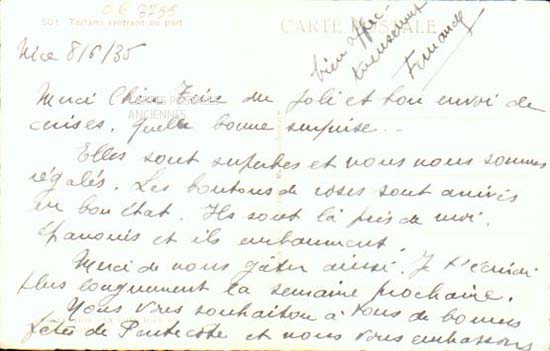 06 3755
501 Tartane rentrant au port
CARTE POSTALE
Nice 8/6/35
bien affec-
tueusement
Fernande
Merci Chère Zoïre du joli et bon envoi de
cerises. Quelle bonne surprise...
CARTES POSTALES
ANCIENNES
Elles sont superbes et nous nous sommes
régalés. Les boutons de roses sont arrivés
en bon état. Ils sont là près de moi,
épanouis et ils embaument.
Merci de nous gâter ainsi. Je t'écrirai
plus longuement la semaine prochaine.
Nous vous souhaitons à tous de bonnes
fêtes de Pentecôte et nous vous embrassons